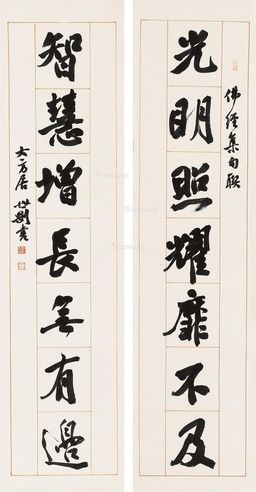 佛經集句聯
光明照耀靡不及
智慧增長無有邊
大方居 世剛書